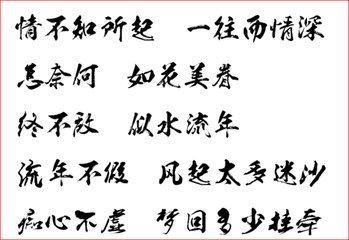 情不知所起 一往而情深
怎奈何 如花美眷
终不敌 似水流年
流年不假 风起太多迷沙
痴心不虚 梦回多少挂牵